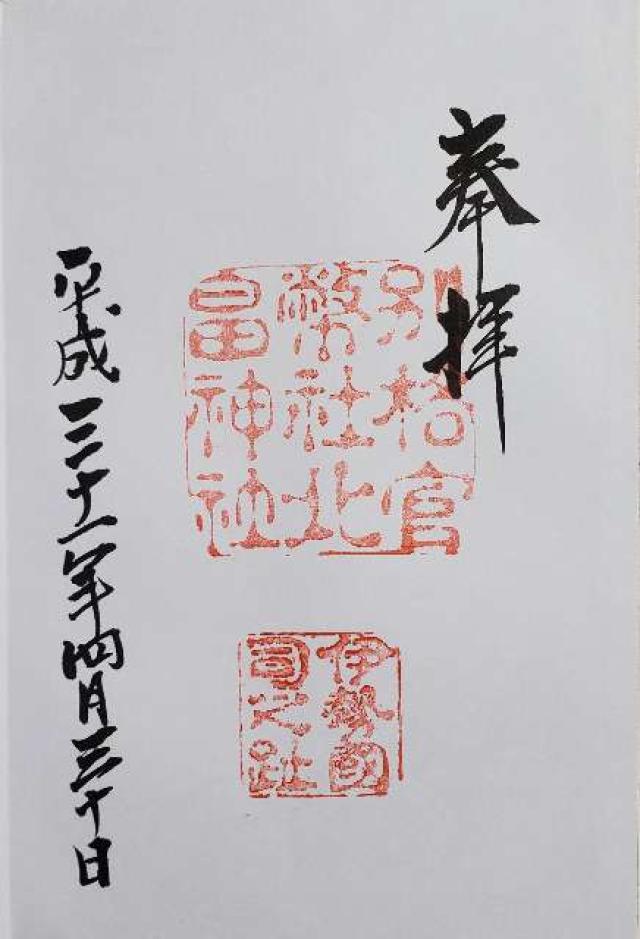 奉拝
別格官
幣社北
畠神社
伊勢国
司之趾
平成三十一年四月三十日